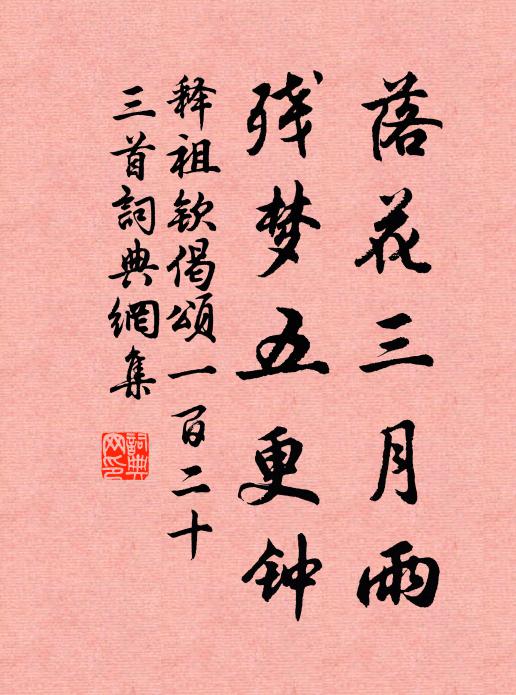 落花三月雨
残梦五更钟
释祖钦偈颂一百二十
三首詞典網集
詞典
网印